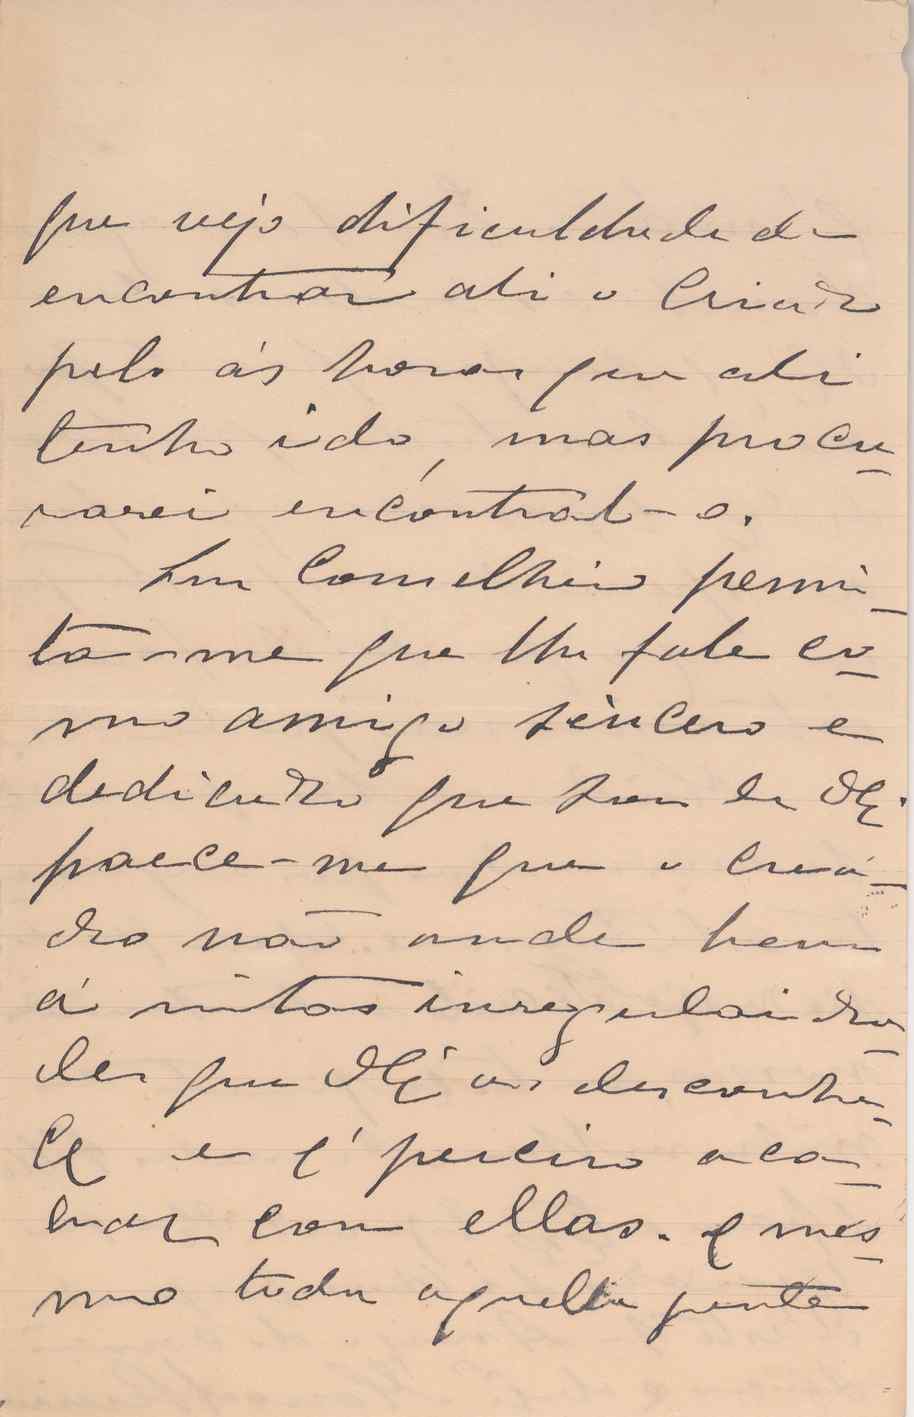 que vejo dificuldade de
encontrar ali o Criado
pelo ás horas que ali
tenho ido, mas procu-
rarei encontral-o.
Snr Conselheiro permi-
ta-me que lhe fale co-
mo amigo sincero e
dedicado que sou de VExª
parece-me que o crea-
do não anda bem
á muitas irregularida-
des que VExª as desconhe-
ce e é preciso aca-
bar com ellas. E mes-
mo toda aquella gente